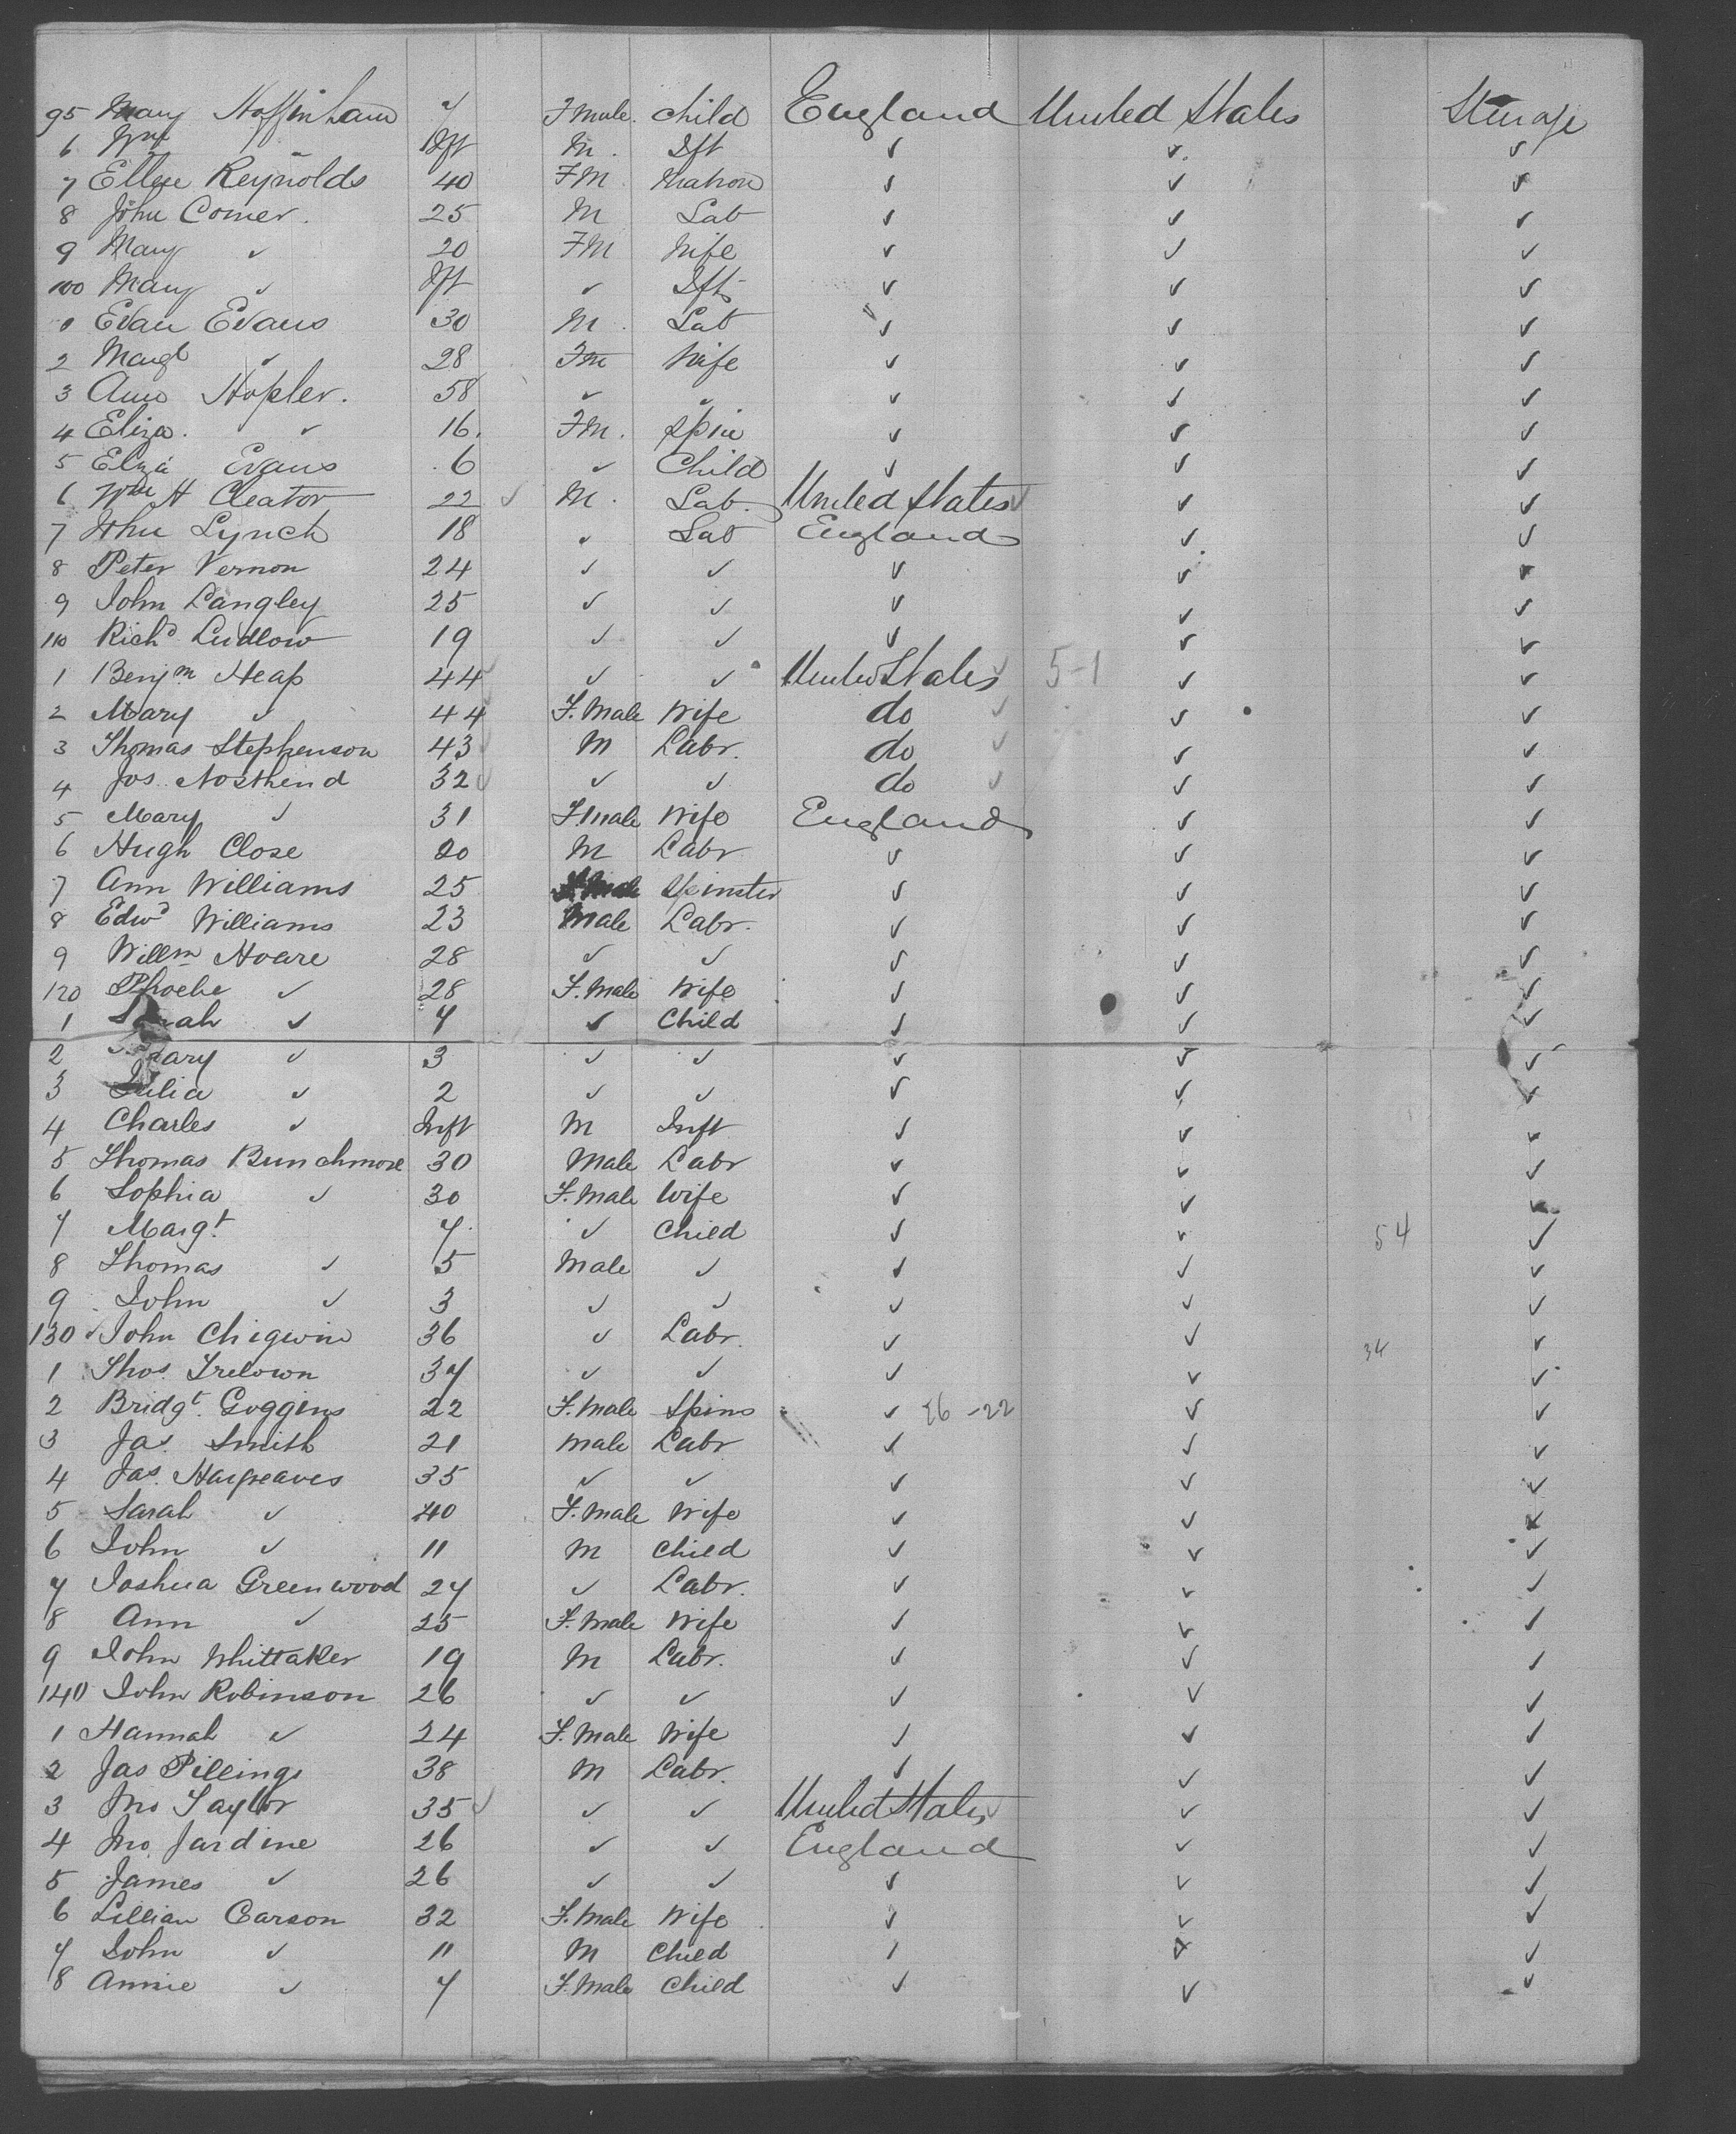 95 Mary Hoffinham 7 Fmale. Child England United States Steerage
6 Wm " Ift M. Ift ✓ ✓ ✓
7 Ellen Reynolds 40 FM Matron ✓ ✓ ✓
8 John Comer. 25 M Lab ✓ ✓ ✓
9 Mary ✓ 20 FM Wife ✓ ✓ ✓
100 Mary ✓ Ift ✓ Ift ✓ ✓ ✓
1 Evan Evans 30 M. Lab ✓ ✓ ✓
2 Margt ✓ 28 Fm Wife ✓ ✓ ✓
3 Ann Hopler. 58 ✓ ✓ ✓ ✓ ✓
4 Eliza. ✓ ✓ 16. FM. Spin ✓ ✓ ✓
5 Elza Evans 6 ✓ Child ✓ ✓ ✓
6 Wm H Cleator 22 ✓ M. Lab. United States ✓ ✓ ✓
7 John Lynch 18 ✓ Lab England ✓ ✓
8 Peter Vernon 24 ✓ ✓ ✓ ✓ ✓
9 John Langley 25 ✓ ✓ ✓ ✓ ✓
110 Richd Ludlow 19 ✓ ✓ ✓ ✓ ✓
1 Benjm Heap 44 ✓ ✓ ✓ United States ✓ 5-1 ✓ ✓
2 Mary ✓ 44 F. Male Wife do ✓ ✓ ✓
3 Thomas Stephenson 43 ✓ M Labr. do ✓ ✓ ✓
4 Jos. Northend 32 ✓ ✓ ✓ do ✓ ✓ ✓
5 Mary ✓ 31 F.male Wife England ✓ ✓
6 Hugh Close 20 M Labr ✓ ✓ ✓
7 Ann Williams 25 F. Male Spinster ✓ ✓ ✓
8 Edwd Williams 23 Male Labr. ✓ ✓ ✓
9 Willm Hoare 28 ✓ ✓ ✓ ✓ ✓
120 Phoebe ✓ 28 F. Male Wife ✓ ✓ ✓
1 Sarah ✓ 7 ✓ Child ✓ ✓ ✓
2 Mary ✓ 3 ✓ ✓ ✓ ✓ ✓
3 Julia ✓ 2 ✓ ✓ ✓ ✓ ✓
4 Charles ✓ Inft M Inft ✓ ✓ ✓
5 Thomas Bunchmore 30 Male Labr ✓ ✓ ✓
6 Sophia ✓ 30 F. Male Wife ✓ ✓ ✓
7 Margt 7. ✓ Child ✓ ✓ 54 ✓
8 Thomas ✓ 5 Male ✓ ✓ ✓ ✓
9 John ✓ 3 ✓ ✓ ✓ ✓ ✓
130 John Chigwin 36 ✓ Labr. ✓ ✓ 34 ✓
1 Thos. Trelown 37 ✓ ✓ ✓ ✓ ✓
2 Bridgt. Goggins 22 F. Male Spins ✓ 26-22 ✓ ✓
3 Jas. Smith 21 Male Labr ✓ ✓ ✓
4 Jas. Hargreaves 35 ✓ ✓ ✓ ✓ ✓
5 Sarah ✓ 40 F. Male Wife ✓ ✓ ✓
6 John ✓ 11 M Child ✓ ✓ ✓
7 Joshua Greenwood 27 ✓ Labr. ✓ ✓ ✓
8 Ann ✓ 25 F. Male Wife ✓ ✓ ✓
9 John Whittaker 19 M Labr. ✓ ✓ ✓
140 John Robinson 26 ✓ ✓ ✓ ✓ ✓
1 Hannah ✓ 24 F. Male Wife ✓ ✓ ✓
2 Jas Pillings 38 M Labr. ✓ ✓ ✓
3 Jno Taylor 35 ✓ ✓ ✓ United States ✓ ✓ ✓
4 Jno. Jardine 26 ✓ ✓ England ✓ ✓
5 James ✓ 26 ✓ ✓ ✓ ✓ ✓
6 Lillian Carson 32 F. Male Wife ✓ ✓ ✓
7 John ✓ 11 M Child ✓ ✓ ✓
8 Annie ✓ 7 F. Male Child ✓ ✓ ✓